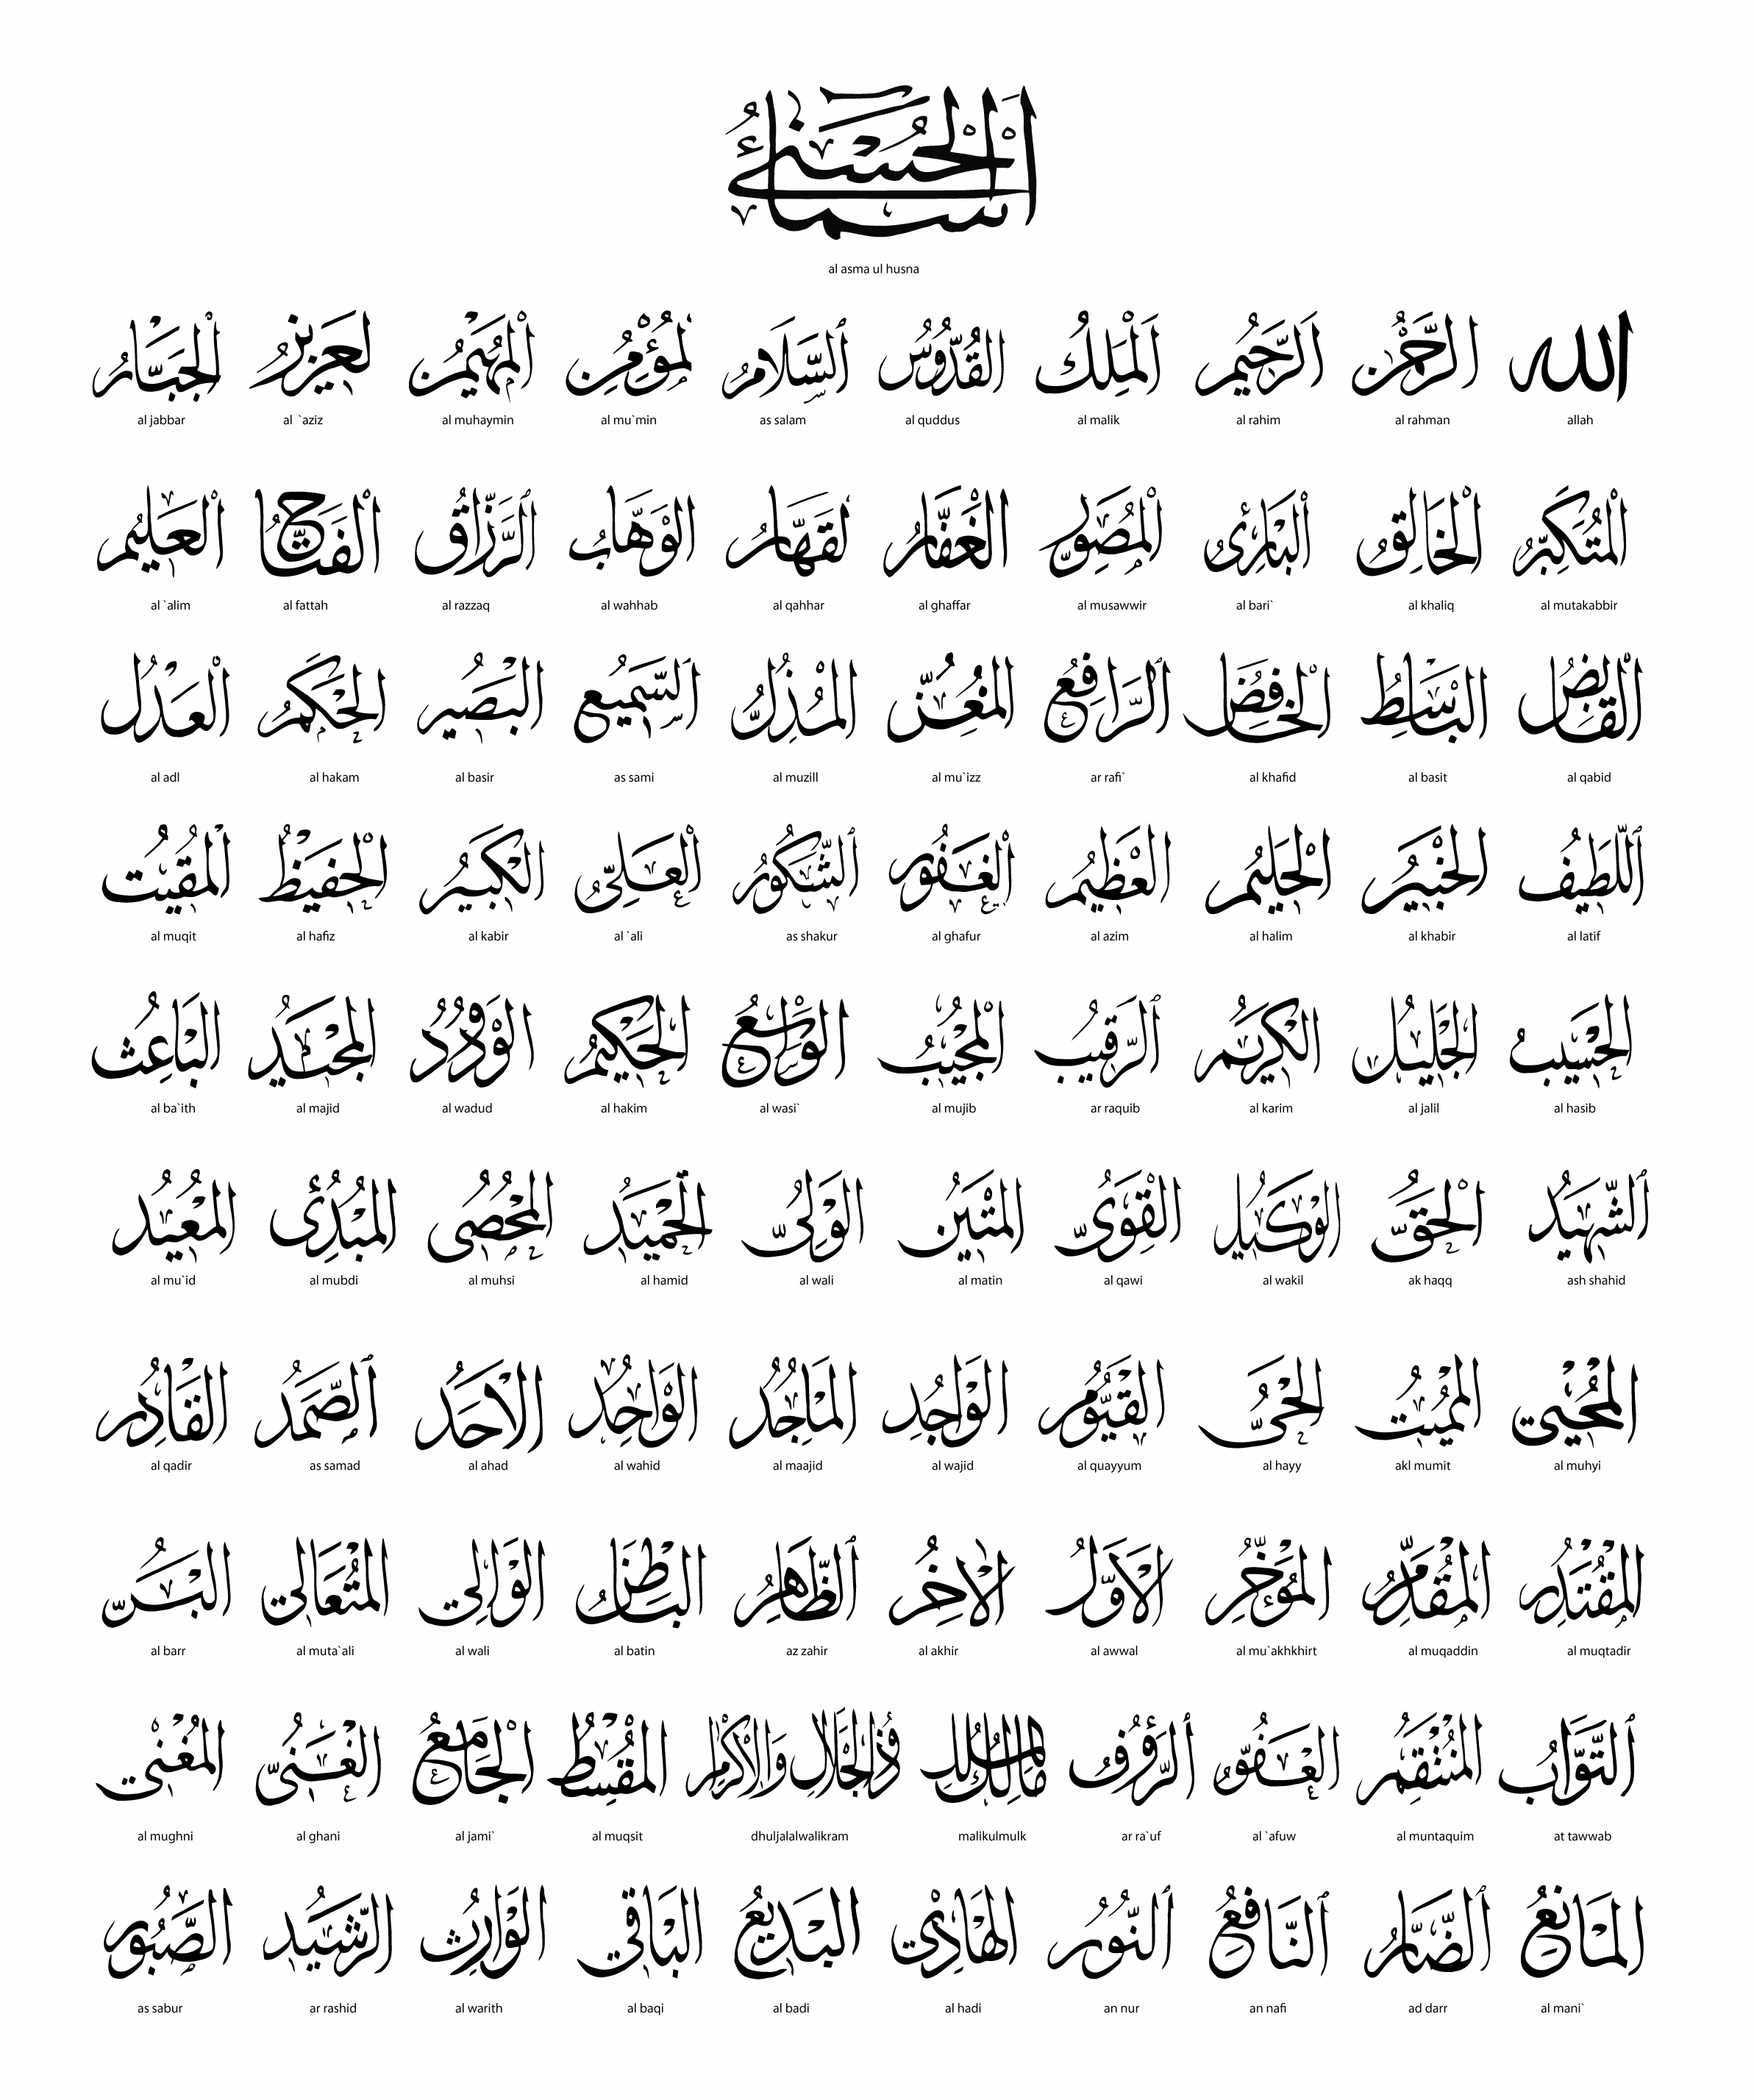 اَلْأَسْمَاءُ الْحُسْنَى
al asma ul husna
الله الرَّحْمٰنُ اَلرَّحِيْمُ اَلْمَلِكُ القُدُّوسُ ٱلسَّلَامُ لمُؤْمِنُ الْمُهَيْمِنُ لعَزِيزُ الْجَبَّارُ
allah al rahman al rahim al malik al quddus as salam al mu`min al muhaymin al `aziz al jabbar
الْمُتَكَبِّرُ الْخَالِقُ الْبَارِئُ الْمُصَوِّرُ الْغَفَّارُ لقَهَّارُ الْوَهَّابُ ٱلرَّزَّاقُ الْفَتَّاحُ الْعَلِيمُ
al mutakabbir al khaliq al bari` al musawwir al ghaffar al qahhar al wahhab al razzaq al fattah al `alim
الْقَابِضُ الْبَاسِطُ الْخَافِضُ ٱلرَّافِعُ الْمُعِزُّ الْمُذِلُّ اَلسَّمِيعُ الْبَصِيرُ الْحَكَمُ الْعَدْلُ
al qabid al basit al khafid ar rafi` al mu`izz al muzill as sami al basir al hakam al adl
ٱللَّطِيفُ الْخَبِيرُ الْحَلِيمُ الْعَظِيمُ الْغَفُورُ ٱلشَّكُورُ الْعَلِيُّ الْكَبِيرُ الْحَفِيظُ الْمُقِيتُ
al latif al khabir al halim al azim al ghafur as shakur al `ali al kabir al hafiz al muqit
الْحَسِيبُ الْجَلِيلُ الْكَرِيمُ ٱلرَّقِيبُ الْمُجِيبُ الْوَاسِعُ الْحَكِيمُ الْوَدُودُ الْمَجِيدُ الْبَاعِثُ
al hasib al jalil al karim ar raquib al mujib al wasi` al hakim al wadud al majid al ba`ith
ٱلشَّهِيدُ الْحَقُّ الْوَكِيلُ الْقَوِيُّ الْمَتِينُ الْوَلِيُّ الْحَمِيدُ الْمُحْصِي الْمُبْدِئُ الْمُعِيدُ
ash shahid ak haqq al wakil al qawi al matin al wali al hamid al muhsi al mubdi al mu`id
الْمُحْيِي الْمُمِيتُ الْحَيُّ الْقَيُّومُ الْوَاجِدُ الْمَاجِدُ الْوَاحِدُ الْاَحَدُ ٱلصَّمَدُ الْقَادِرُ
al muhyi akl mumit al hayy al quayyum al wajid al maajid al wahid al ahad as samad al qadir
الْمُقْتَدِرُ الْمُقَدِّمُ الْمُؤَخِّرُ الْاَوَّلُ الْاٰخِرُ ٱلظَّاهِرُ الْبَاطِنُ الْوَالِي الْمُتَعَالِي الْبَرُّ
al muqtadir al muqaddin al mu`akhkhirt al awwal al akhir az zahir al batin al wali al muta`ali al barr
ٱلتَّوَّابُ الْمُنْتَقِمُ الْعَفُوُّ ٱلرَّؤُوفُ مَالِكُ الْمُلْكِ ذُو الْجَلَالِ وَالْاِكْرَامِ الْمُقْسِطُ الْجَامِعُ الْغَنِيُّ الْمُغْنِي
at tawwab al muntaquim al `afuw ar ra`uf malikulmulk dhuljalalwalikram al muqsit al jami` al ghani al mughni
الْمَانِعُ ٱلضَّارُّ ٱلنَّافِعُ ٱلنُّورُ الْهَادِي الْبَدِيعُ الْبَاقِي الْوَارِثُ الرَّشِيدُ الصَّبُورُ
al mani` ad darr an nafi an nur al hadi al badi al baqi al warith ar rashid as sabur